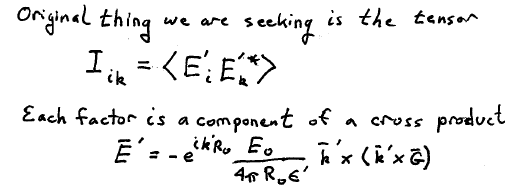 Original thing we are seeking is the tensor
I_ik = <E'_i E'_k*>
Each factor is a component of a cross product
Ē' = -e^{ik'R₀} E₀/(4πR₀ε') k̄' × (k̄' × Ḡ)